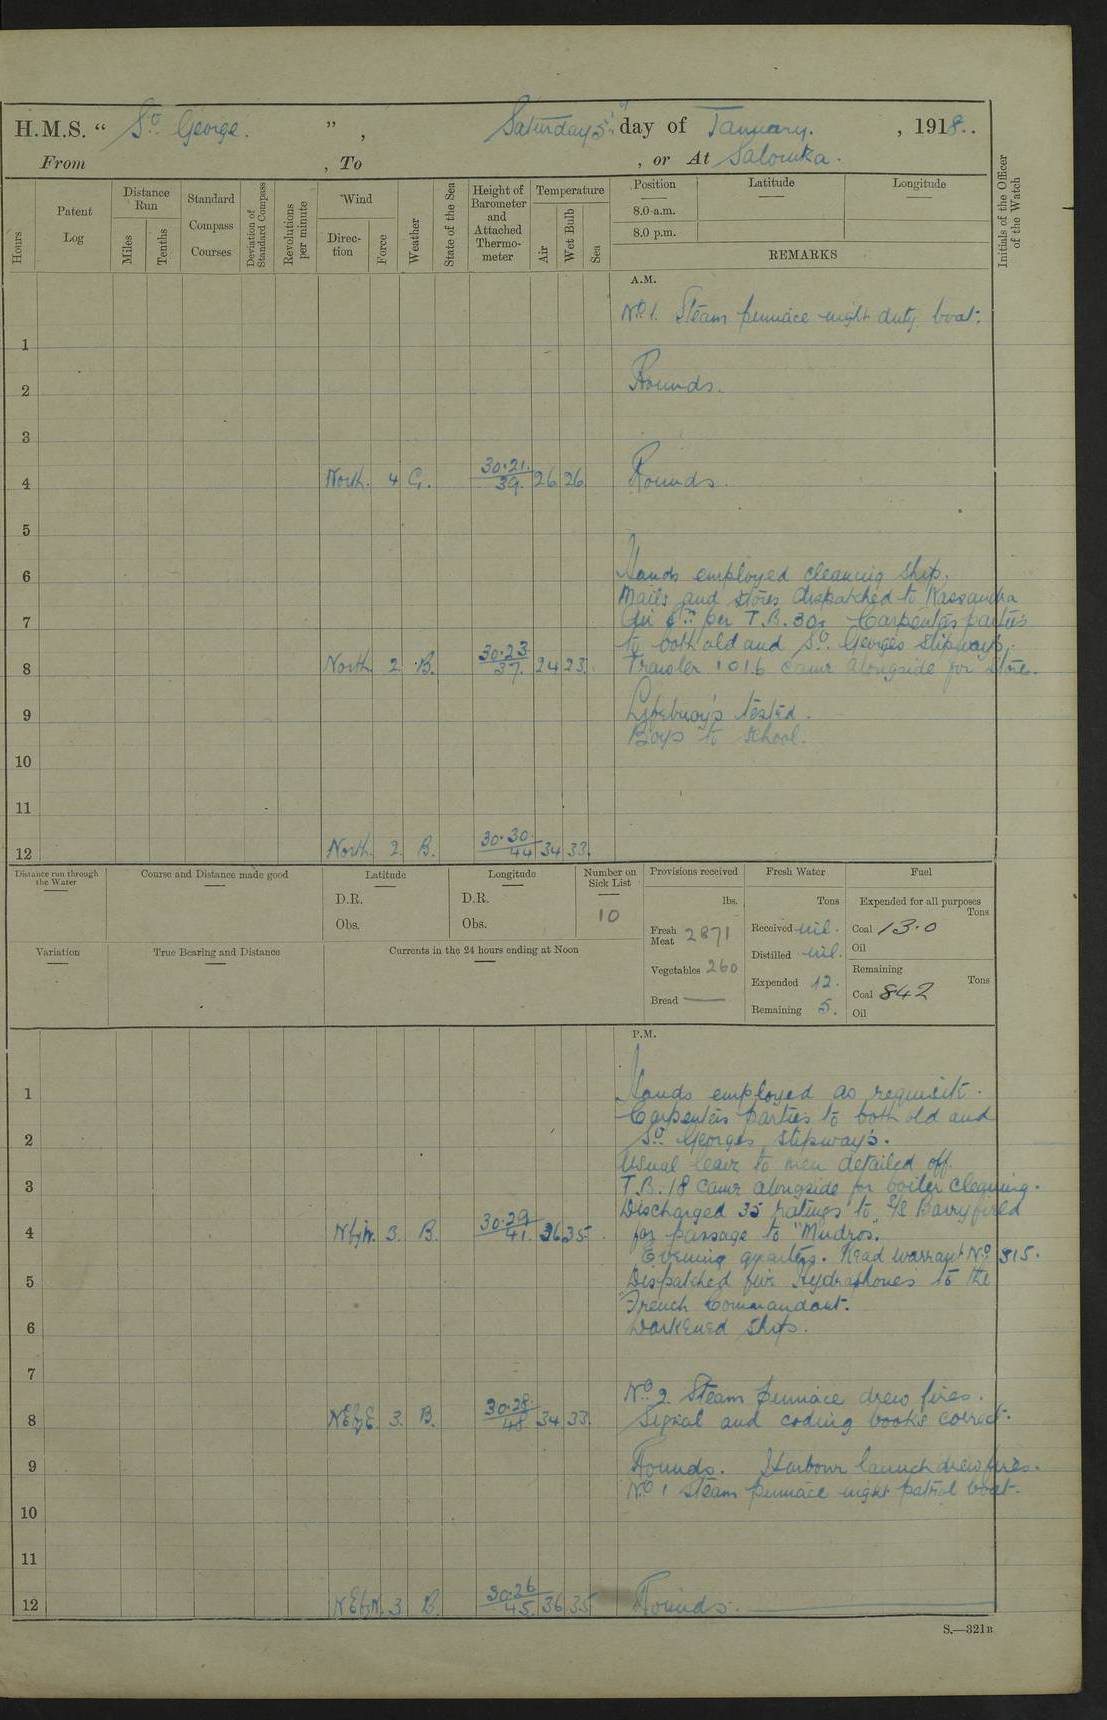 H.M.S. “ St. George. ” , Saturday 5th day of January. , 1918..
From , To , or At Salonika.
Hours
Patent Log
Distance Run
Miles
Tenths
Standard Compass Courses
Deviation of Standard Compass
Revolutions per minute
Wind
Direction
Force
Weather
State of the Sea
Height of Barometer and Attached Thermometer
Temperature
Air
Wet Bulb
Sea
Position
Latitude
Longitude
8.0 a.m.
8.0 p.m.
REMARKS
Initials of the Officer of the Watch
A.M.
No. 1. Steam pinnace night duty boat.
1
2 Rounds.
3
4 North. 4 C. 30.21. 39. 26 26 Rounds.
5
6 Hands employed cleaning ship.
Mails and stores dispatched to Kassandra
7 per T.B. 30. Carpenters parties
to both old and St. Georges slipways.
8 North 2 B. 30.23 37. 24 23. Trawler 1016 came alongside for stores.
9 Lifebuoy's tested.
Boys to school.
10
11
12 North. 2. B. 30.30. 44 34 33.
Distance run through the Water
Course and Distance made good
Latitude
D.R.
Obs.
Longitude
D.R.
Obs.
Number on Sick List
10
Provisions received
lbs.
Fresh Meat 2871
Vegetables 260
Bread —
Fresh Water
Tons
Received nil.
Distilled nil.
Expended 12.
Remaining 5.
Fuel
Expended for all purposes
Tons
Coal 13.0
Oil
Remaining
Tons
Coal 842
Oil
Variation
True Bearing and Distance
Currents in the 24 hours ending at Noon
P.M.
1 Hands employed as requisite.
Carpenters parties to both old and
2 St. Georges slipway's.
Usual leave to men detailed off.
3 T.B. 18 came alongside for boiler cleaning.
Discharged 35 ratings to S/S Barryfield
4 NbyW. 3. B. 30.29 41. 36 35 for passage to "Mudros".
Evening quarters. Read warrant No. 315.
5 Dispatched five Hydrophones to the
French Commandant.
6 Darkened ship.
7
No. 2 Steam pinnace drew fires.
8 NEbyE. 3. B. 30.28. 48 34 33. Signal and coding books correct.
9 Rounds. Harbour launch drew fires.
No. 1 Steam pinnace night patrol boat.
10
11
12 NEbyN. 3 B. 30.26 45. 36 35 Rounds.
S.—321B